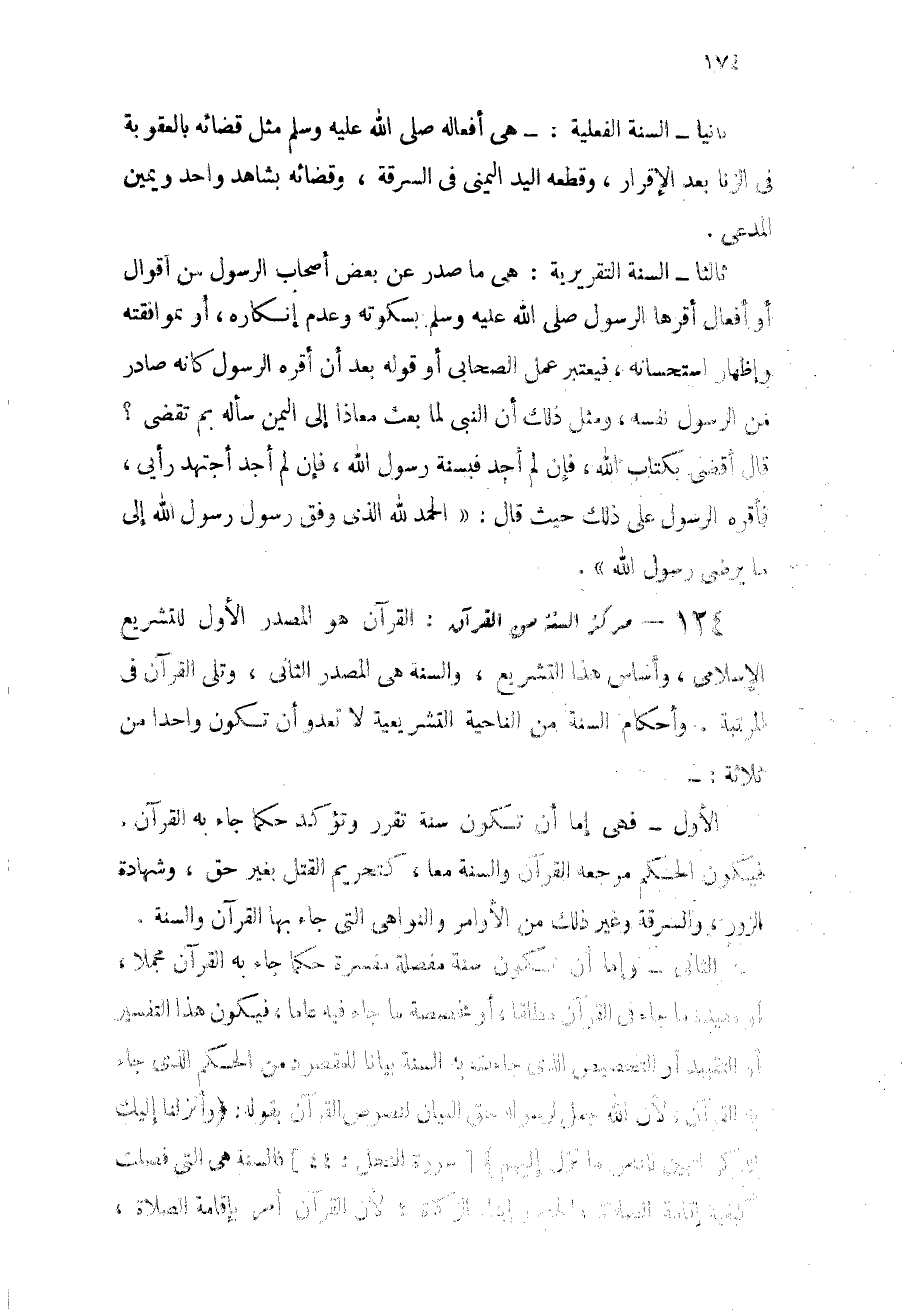 ١٧٤
ثانيا ــ السنة الفعلية : ــ هى أفعاله صلى الله عليه وسلم مثل قضائه بالعقوبة
فى الزنا بعد الإقرار ، وقطعه اليد اليمنى فى السرقة ، وقضائه بشاهد واحد ويمين
المدعى .
ثالثا ــ السنة التقريرية : هى ما صدر عن بعض أصحاب الرسول من أقوال
أو أفعال أقرها الرسول صلى الله عليه وسلم بسكوته وعدم إنكاره ، أو بموافقته
وإظهار استحسانه ، فيعتبر عمل الصحابى أو قوله بعد أن أقره الرسول كانه صادر
من الرسول نفسه ، ومثل ذلك أن النبى لما بعث معاذا إلى اليمن سأله بم تقضى ؟
قال أقضى بكتاب الله ، فإن لم أجد فبسنة رسول الله ، فإن لم أجد أجتهد رأيى ،
فأقره الرسول على ذلك حيث قال : « الحمد لله الذى وفق رسول رسول الله إلى
ما يرضى رسول الله » .
١٣٤ — مركز السنة من القرآن : القرآن هو المصدر الأول للتشريع
الإسلامى ، وأساس هذا التشريع ، والسنة هى المصدر الثانى ، وتلى القرآن فى
المرتبة . وأحكام السنة من الناحية التشريعية لا تعدو أن تكون واحدا من
ثلاثة : ــ
الأول ــ فهى إما أن تكون سنة تقرر وتؤكد حكما جاء به القرآن .
فيكون الحكم مرجعه القرآن والسنة معا ، كتحريم القتل بغير حق ، وشهادة
الزور ، والسرقة وغير ذلك من الأوامر والنواهى التى جاء بها القرآن والسنة .
الثانى ــ وإما أن تكون سنة مفصلة مفسرة حكما جاء به القرآن مجملا ،
أو مقيدة ما جاء فى القرآن مطلقا ، أو مخصصة ما جاء فيه عاما ، فيكون هذا التفسير
أو التقييد أو التخصيص الذى جاءت به السنة بيانا للمقصود من الحكم الذى جاء
به القرآن ، لأن الله جعل لرسوله حق البيان لنصوص القرآن بقوله : ﴿وأنزلنا إليك
الذكر لتبين للناس ما نزل إليهم﴾ [ سورة النحل : ٤٤ ] فالسنة هى التى فصلت
كيفية إقامة الصلاة ، الحج وإيتاء الزكاة ؛ لأن القرآن أمر بإقامة الصلاة ،